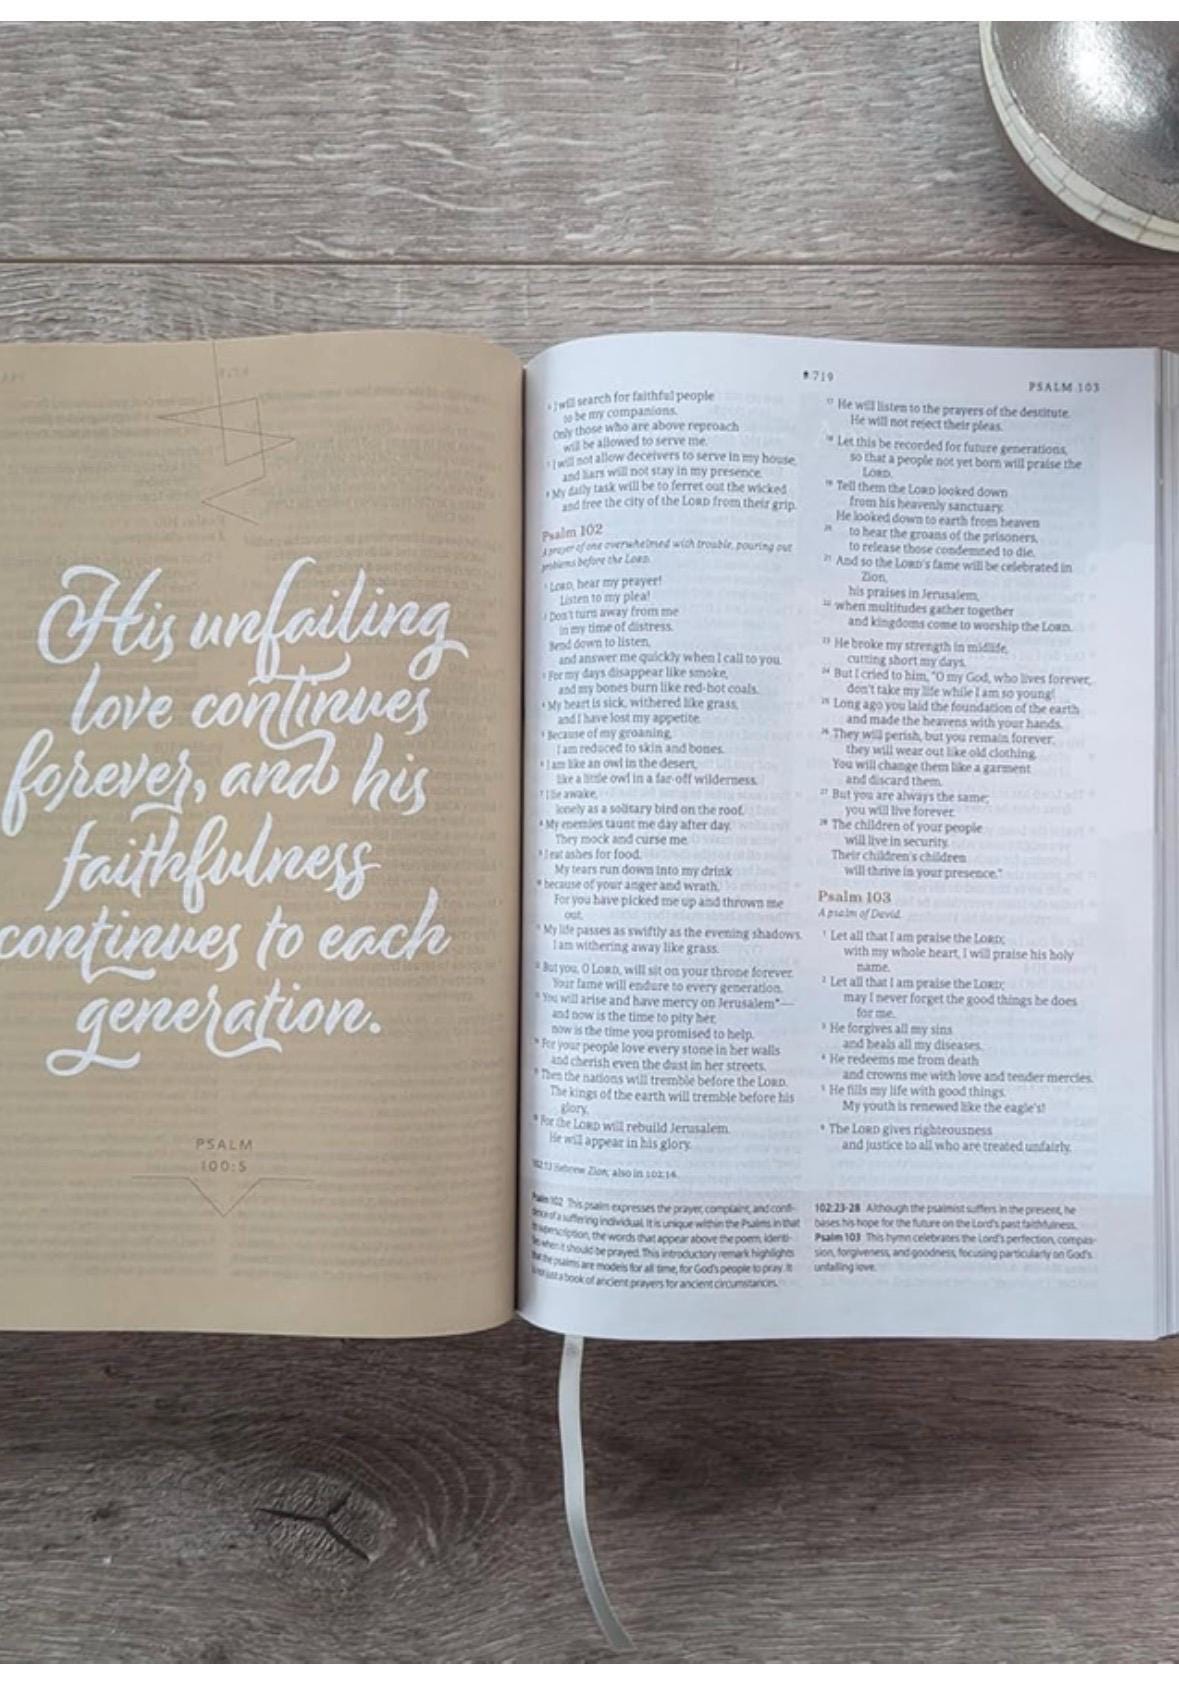 His unfailing
love continues
forever, and his
faithfulness
continues to each
generation.
PSALM
100:5
719
PSALM 103
6 I will search for faithful people
to be my companions.
Only those who are above reproach
will be allowed to serve me.
7 I will not allow deceivers to serve in my house,
and liars will not stay in my presence.
8 My daily task will be to ferret out the wicked
and free the city of the LORD from their grip.
Psalm 102
A prayer of one overwhelmed with trouble, pouring out
problems before the LORD.
1 LORD, hear my prayer!
Listen to my plea!
2 Don't turn away from me
in my time of distress.
Bend down to listen,
and answer me quickly when I call to you.
3 For my days disappear like smoke,
and my bones burn like red-hot coals.
4 My heart is sick, withered like grass,
and I have lost my appetite.
5 Because of my groaning,
I am reduced to skin and bones.
6 I am like an owl in the desert,
like a little owl in a far-off wilderness.
7 I lie awake,
lonely as a solitary bird on the roof.
8 My enemies taunt me day after day.
They mock and curse me.
9 I eat ashes for food.
My tears run down into my drink
10 because of your anger and wrath.
For you have picked me up and thrown me
out.
11 My life passes as swiftly as the evening shadows.
I am withering away like grass.
12 But you, O LORD, will sit on your throne forever.
Your fame will endure to every generation.
13 You will arise and have mercy on Jerusalem*—
and now is the time to pity her,
now is the time you promised to help.
14 For your people love every stone in her walls
and cherish even the dust in her streets.
15 Then the nations will tremble before the LORD.
The kings of the earth will tremble before his
glory.
16 For the LORD will rebuild Jerusalem.
He will appear in his glory.
102:13 Hebrew Zion; also in 102:16.
Psalm 102 This psalm expresses the prayer, complaint, and confi-
dence of a suffering individual. It is unique within the Psalms in that
its superscription, the words that appear above the poem, identi-
fies when it should be prayed. This introductory remark highlights
that the psalms are models for all time, for God's people to pray. It
is not just a book of ancient prayers for ancient circumstances.
17 He will listen to the prayers of the destitute.
He will not reject their pleas.
18 Let this be recorded for future generations,
so that a people not yet born will praise the
LORD.
19 Tell them the LORD looked down
from his heavenly sanctuary.
He looked down to earth from heaven
20 to hear the groans of the prisoners,
to release those condemned to die.
21 And so the LORD's fame will be celebrated in
Zion,
his praises in Jerusalem,
22 when multitudes gather together
and kingdoms come to worship the LORD.
23 He broke my strength in midlife,
cutting short my days.
24 But I cried to him, "O my God, who lives forever,
don't take my life while I am so young!
25 Long ago you laid the foundation of the earth
and made the heavens with your hands.
26 They will perish, but you remain forever;
they will wear out like old clothing.
You will change them like a garment
and discard them.
27 But you are always the same;
you will live forever.
28 The children of your people
will live in security.
Their children's children
will thrive in your presence."
Psalm 103
A psalm of David.
1 Let all that I am praise the LORD;
with my whole heart, I will praise his holy
name.
2 Let all that I am praise the LORD;
may I never forget the good things he does
for me.
3 He forgives all my sins
and heals all my diseases.
4 He redeems me from death
and crowns me with love and tender mercies.
5 He fills my life with good things.
My youth is renewed like the eagle's!
6 The LORD gives righteousness
and justice to all who are treated unfairly.
102:23-28 Although the psalmist suffers in the present, he
bases his hope for the future on the Lord's past faithfulness.
Psalm 103 This hymn celebrates the Lord's perfection, compas-
sion, forgiveness, and goodness, focusing particularly on God's
unfailing love.